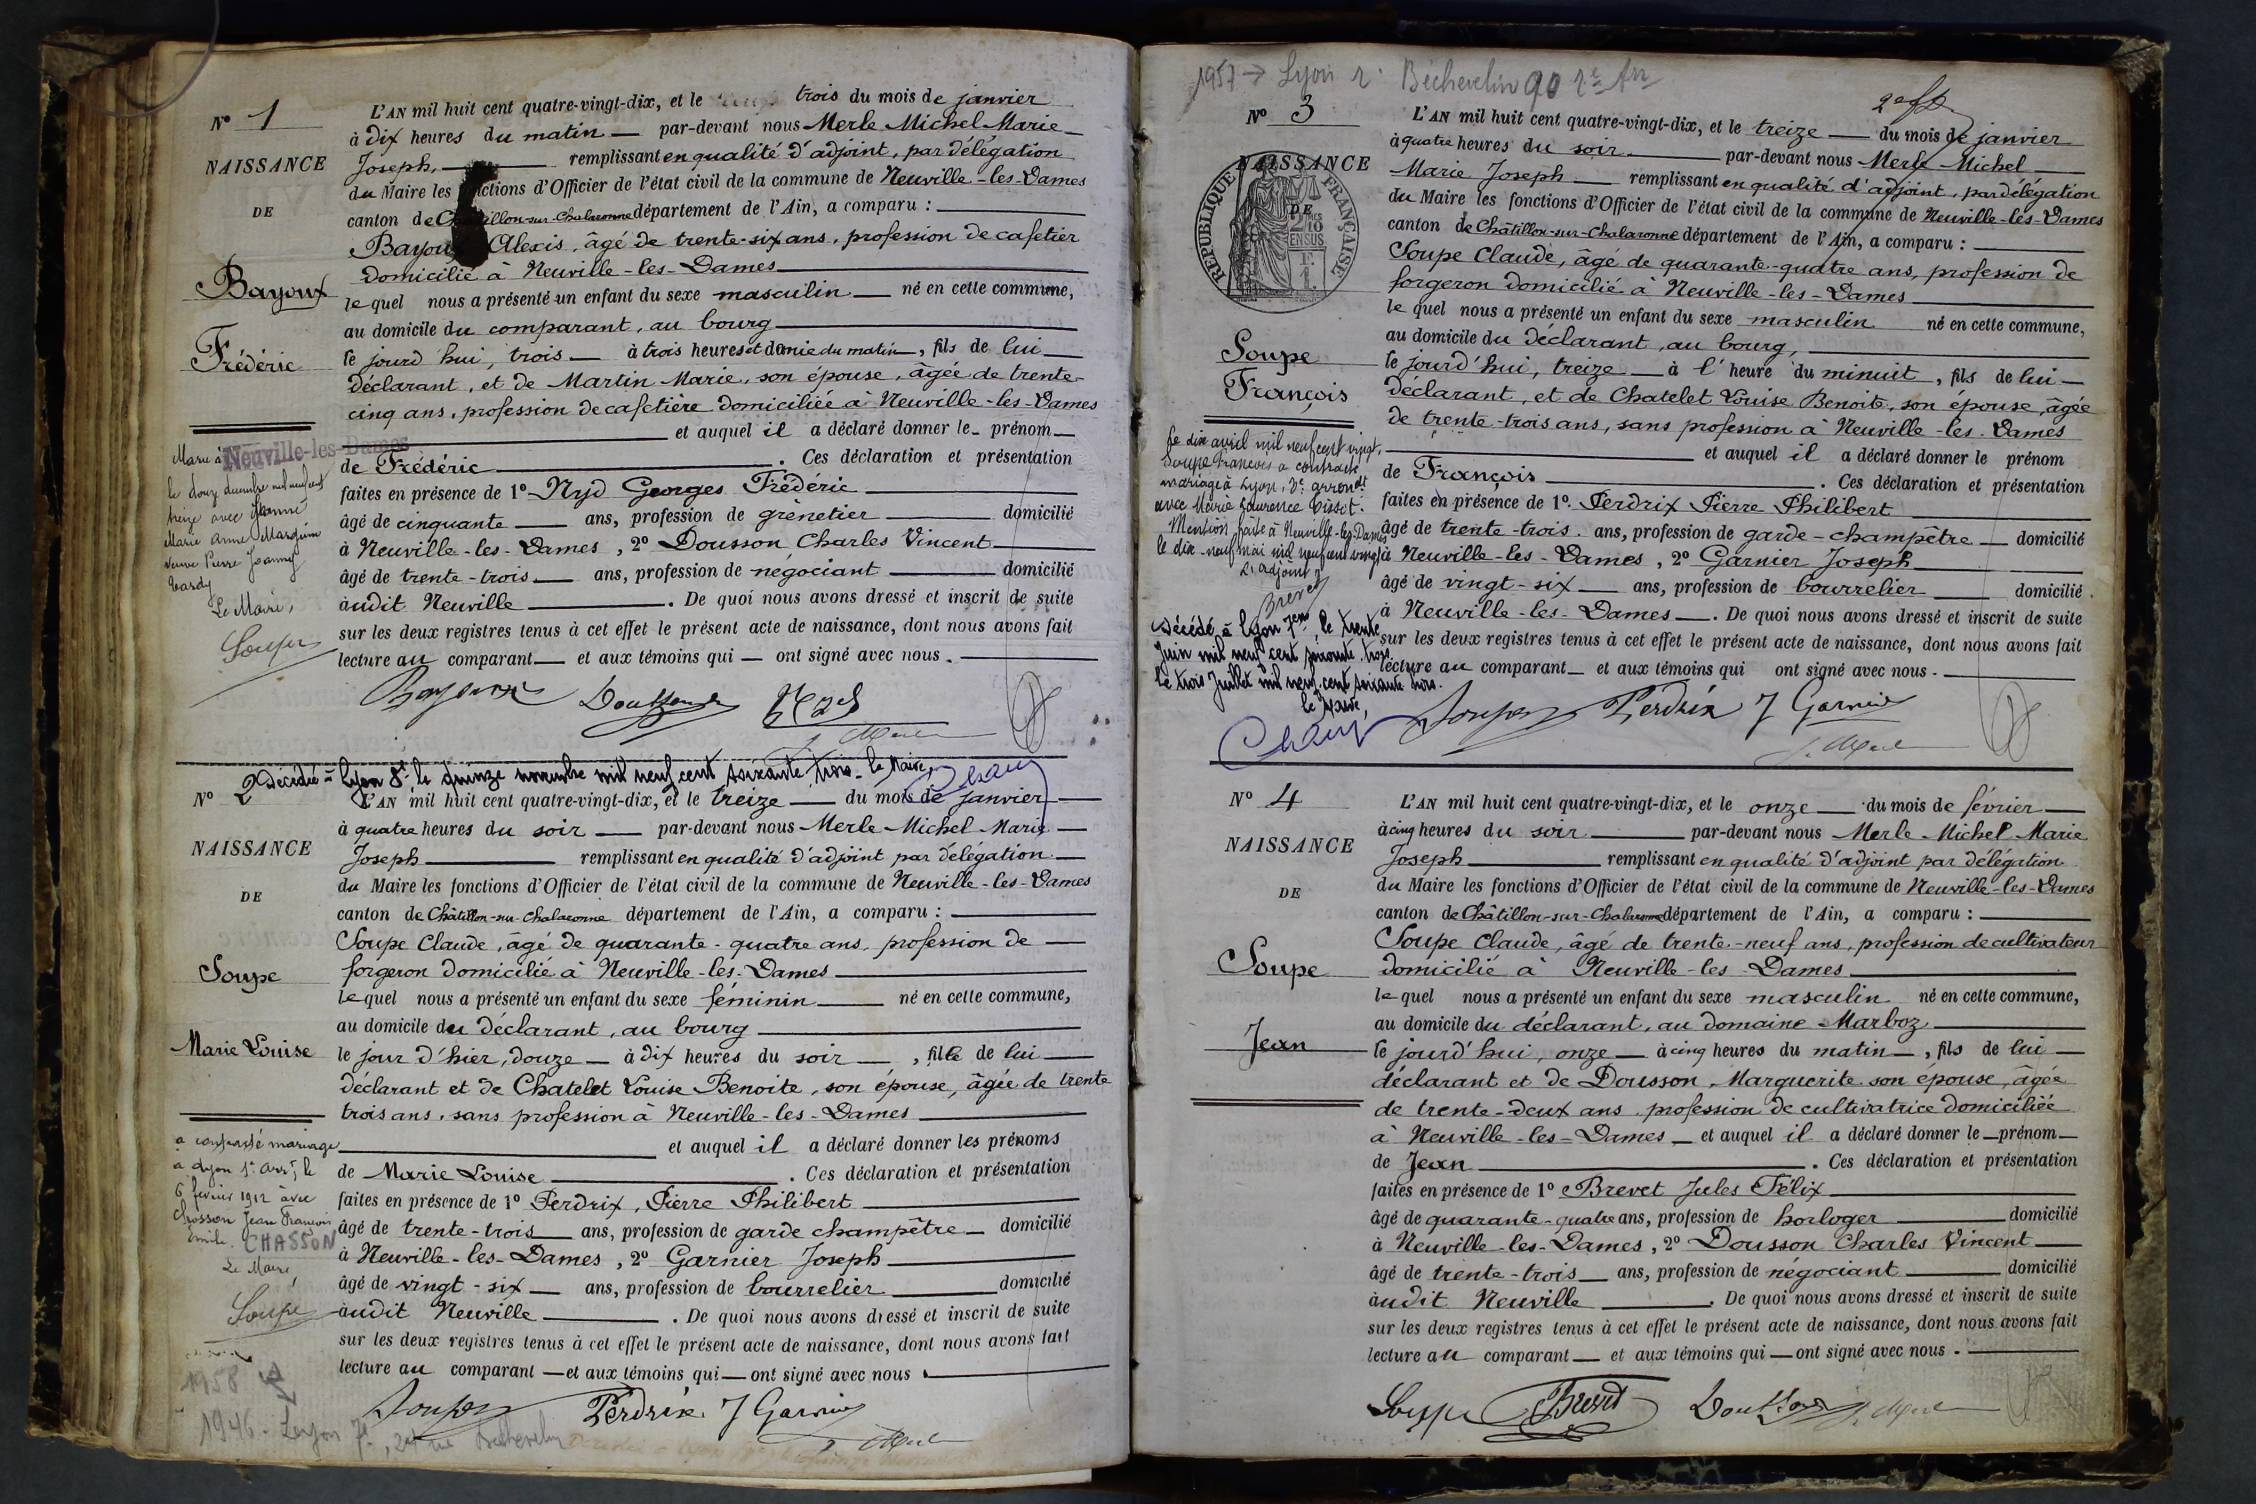 Nº 1
NAISSANCE
DE
Bayoux
Frédéric
L'AN mil huit cent quatre-vingt-dix, et le trois du mois de janvier
à dix heures du matin par-devant nous Merle Michel Marie
Joseph, remplissant en qualité d'adjoint, par délégation
du Maire les fonctions d'Officier de l'état civil de la commune de Neuville-les-Dames
canton de Châtillon-sur-Chalaronne département de l'Ain, a comparu :
Bayoux Alexis, âgé de trente-six ans, profession de cafetier
domicilié à Neuville-les-Dames
le quel nous a présenté un enfant du sexe masculin né en cette commune,
au domicile du comparant, au bourg
le jourd'hui, trois à trois heures et demie du matin, fils de lui
déclarant, et de Martin Marie, son épouse, âgée de trente-
cinq ans, profession de cafetière domiciliée à Neuville-les-Dames
et auquel il a déclaré donner le prénom
de Frédéric. Ces déclaration et présentation
faites en présence de 1º Nyd Georges Frédéric
âgé de cinquante ans, profession de grènetier domicilié
à Neuville-les-Dames, 2º Dousson Charles Vincent
âgé de trente-trois ans, profession de négociant domicilié
audit Neuville. De quoi nous avons dressé et inscrit de suite
sur les deux registres tenus à cet effet le présent acte de naissance, dont nous avons fait
lecture au comparant et aux témoins qui ont signé avec nous.
Marié à Neuville-les-Dames
le douze décembre mil neuf cent
treize avec Jeanne
Marie Anne Marguin
veuve Pierre Joanny
Tardy
Le Maire,
Soupe
Bayoux Dousson Nyd
J. Merle
Décédée à Lyon 8e le quinze novembre mil neuf cent soixante trois. le Maire,
Nº 2
NAISSANCE
DE
Soupe
Marie Louise
L'AN mil huit cent quatre-vingt-dix, et le treize du mois de janvier
à quatre heures du soir par-devant nous Merle Michel Marie
Joseph remplissant en qualité d'adjoint par délégation
du Maire les fonctions d'Officier de l'état civil de la commune de Neuville-les-Dames
canton de Châtillon-sur-Chalaronne département de l'Ain, a comparu :
Soupe Claude, âgé de quarante-quatre ans, profession de
forgeron domicilié à Neuville-les-Dames
le quel nous a présenté un enfant du sexe féminin né en cette commune,
au domicile du déclarant, au bourg
le jour d'hier, douze à dix heures du soir, fille de lui
déclarant et de Chatelet Louise Benoite, son épouse, âgée de trente
trois ans, sans profession à Neuville-les-Dames
et auquel il a déclaré donner les prénoms
de Marie Louise. Ces déclaration et présentation
faites en présence de 1º Perdrix, Pierre Philibert
âgé de trente-trois ans, profession de garde champêtre domicilié
à Neuville-les-Dames, 2º Garnier Joseph
âgé de vingt-six ans, profession de bourrelier domicilié
audit Neuville. De quoi nous avons dressé et inscrit de suite
sur les deux registres tenus à cet effet le présent acte de naissance, dont nous avons fait
lecture au comparant et aux témoins qui ont signé avec nous
a contracté mariage
à Lyon 1er arrt, le
6 février 1912 avec
Chosson Jean François
Emile. CHASSON
Le Maire,
Soupe
1958
1946 - Lyon 7e, rue Béchevelin
Soupe Perdrix J Garnier
J. Merle
1957 → Lyon r. Béchevelin 90
Nº 3
NAISSANCE
DE
RÉPUBLIQUE FRANÇAISE
2/10
EN SUS
Soupe
François
L'AN mil huit cent quatre-vingt-dix, et le treize du mois de janvier
à quatre heures du soir par-devant nous Merle Michel
Marie Joseph remplissant en qualité d'adjoint, par délégation
du Maire les fonctions d'Officier de l'état civil de la commune de Neuville-les-Dames
canton de Châtillon-sur-Chalaronne département de l'Ain, a comparu :
Soupe Claude, âgé de quarante-quatre ans, profession de
forgeron domicilié à Neuville-les-Dames
le quel nous a présenté un enfant du sexe masculin né en cette commune,
au domicile du déclarant, au bourg,
le jourd'hui, treize à l'heure du minuit, fils de lui
déclarant, et de Chatelet Louise Benoite, son épouse, âgée
de trente-trois ans, sans profession à Neuville-les-Dames
et auquel il a déclaré donner le prénom
de François. Ces déclaration et présentation
faites en présence de 1º. Perdrix Pierre Philibert
âgé de trente-trois. ans, profession de garde-champêtre domicilié
à Neuville-les-Dames, 2º Garnier Joseph
âgé de vingt-six ans, profession de bourrelier domicilié.
à Neuville-les-Dames. De quoi nous avons dressé et inscrit de suite
sur les deux registres tenus à cet effet le présent acte de naissance, dont nous avons fait
lecture au comparant et aux témoins qui ont signé avec nous.
Le dix avril mil neuf cent vingt,
Soupe François a contracté
mariage à Lyon, 3e arrondt
avec Marie Laurence Tissot.
Mention faite à Neuville-les-Dames
le dix-neuf mai mil neuf cent vingt
L'adjoint
Brevet
Décédé à Lyon 7eme le trente
Juin mil neuf cent soixante trois.
le trois Juillet mil neuf cent soixante trois.
le Maire,
Soupe Perdrix J Garnier
J. Merle
Nº 4
NAISSANCE
DE
Soupe
Jean
L'AN mil huit cent quatre-vingt-dix, et le onze du mois de février
à cinq heures du soir par-devant nous Merle Michel Marie
Joseph remplissant en qualité d'adjoint par délégation
du Maire les fonctions d'Officier de l'état civil de la commune de Neuville-les-Dames
canton de Châtillon-sur-Chalaronne département de l'Ain, a comparu :
Soupe Claude, âgé de trente-neuf ans, profession de cultivateur
domicilié à Neuville-les-Dames
le quel nous a présenté un enfant du sexe masculin né en cette commune,
au domicile du déclarant, au domaine Marboz
le jourd'hui, onze à cinq heures du matin, fils de lui
déclarant et de Dousson, Marguerite son épouse, âgée
de trente-deux ans profession de cultivatrice domiciliée
à Neuville-les-Dames et auquel il a déclaré donner le prénom
de Jean. Ces déclaration et présentation
faites en présence de 1º Brevet Jules Félix
âgé de quarante-quatre ans, profession de horloger domicilié
à Neuville-les-Dames, 2º Dousson Charles Vincent
âgé de trente-trois ans, profession de négociant domicilié
audit Neuville. De quoi nous avons dressé et inscrit de suite
sur les deux registres tenus à cet effet le présent acte de naissance, dont nous avons fait
lecture au comparant et aux témoins qui ont signé avec nous.
Soupe Brevet Dousson J. Merle